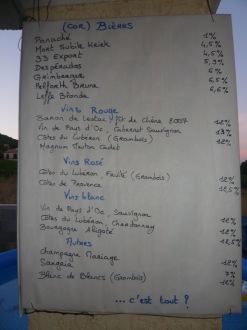 (COR) BIÈRES
Panaché 1%
Mont Subite Kriek 4,5%
33 Export 4,5%
Despérados 5,9%
Grimbergen 6%
Pelforth Brune 6,5%
Leffe Blonde 6,6%
Vins Rouge
Baron de Lestac, fût de Chêne 2007 12%
Vin de Pays d'Oc, Cabernet Sauvignon 13%
Côtes du Lubéron (Grambois) 12%
Magnum Mouton Cadet
Vins Rosé
Côtes du Lubéron, (Grambois) 12%
Côtes de Provence 12,5%
Vins blanc
Vin de Pays d'Oc, Sauvignon 12%
Côtes du Lubéron, Chardonnay 12%
Bourgogne Aligoté 12,5%
Autres
Champagne Mariage 12%
Sangria 7%
Blanc de Blancs (Grambois) 12%
... c'est tout ?